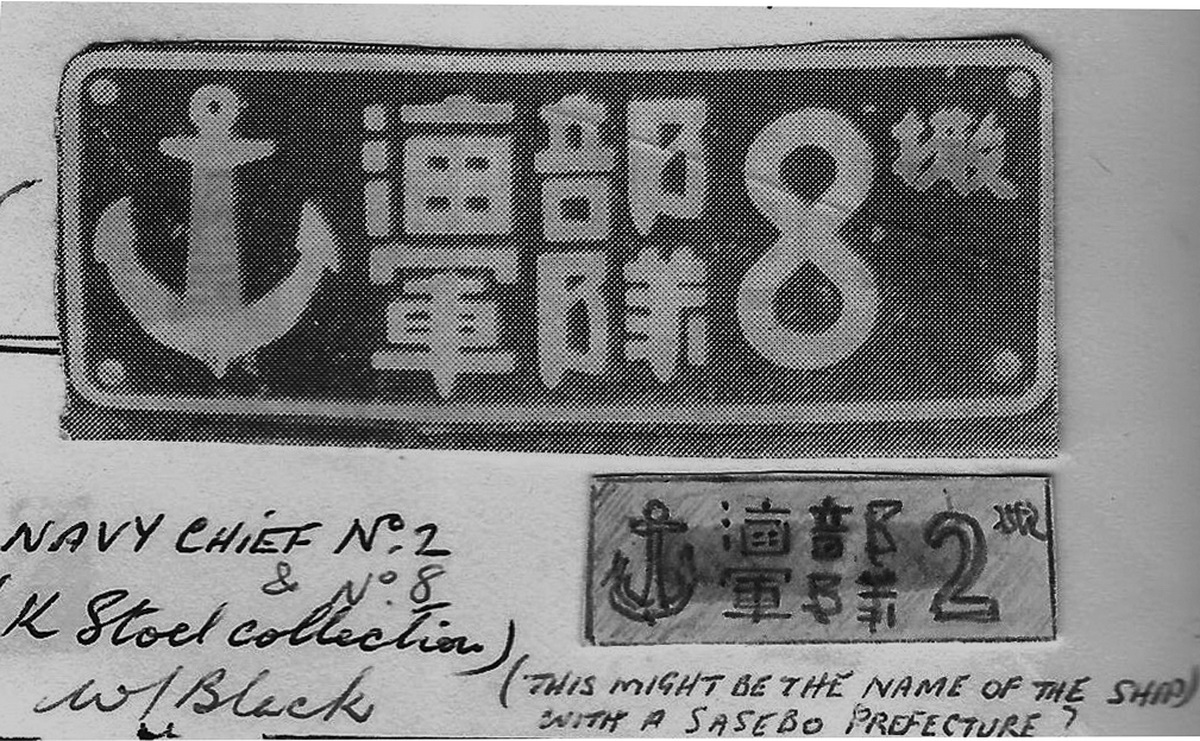 部 8
軍
部 2
軍
NAVY CHIEF Nº. 2
& Nº. 8
(K Stoel collection)
w/ Black
(THIS MIGHT BE THE NAME OF THE SHIP)
WITH A SASEBO PREFECTURE ?